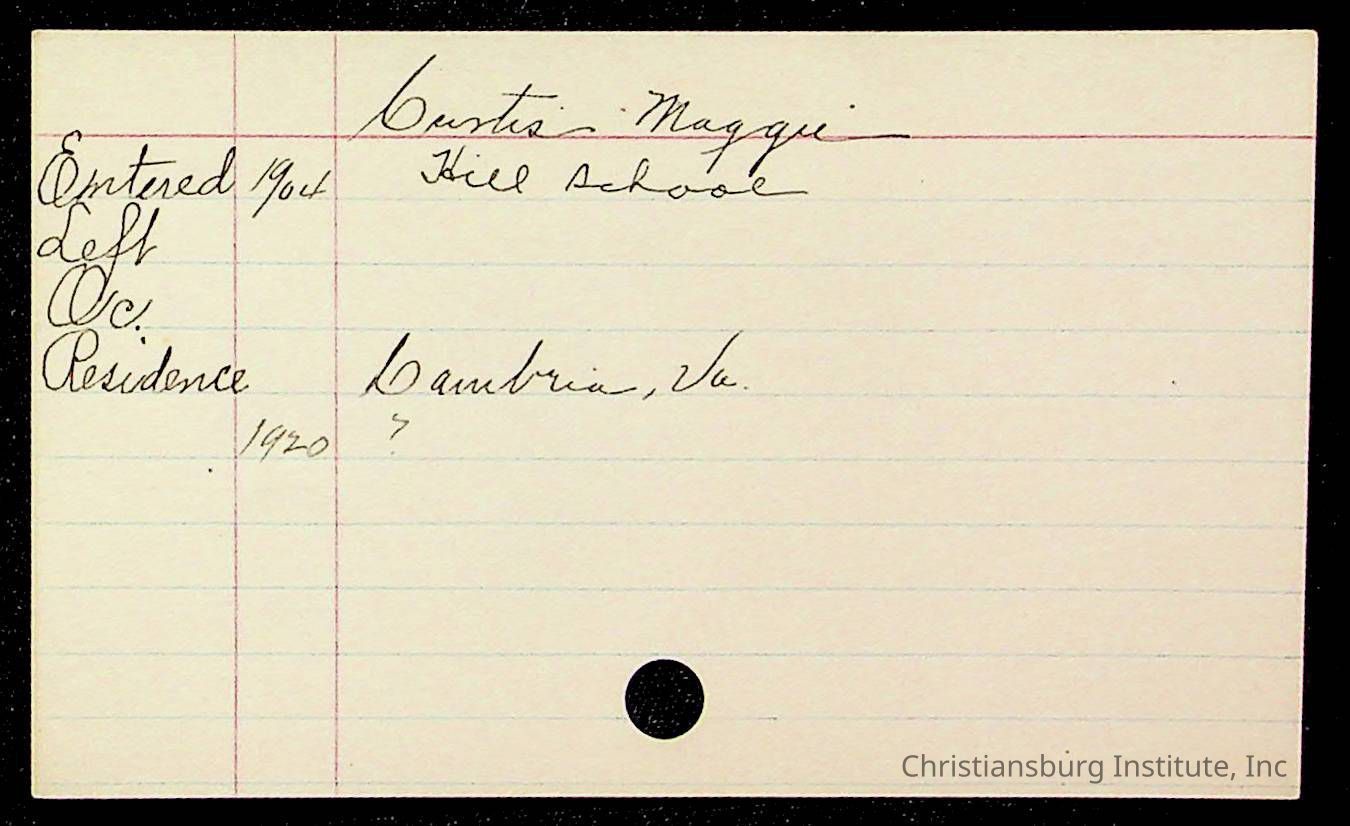 Curtis Maggie
Entered 1904 Hill School
Left
Oc.
Residence Cambria, Va.
1920 ?
Christiansburg Institute, Inc